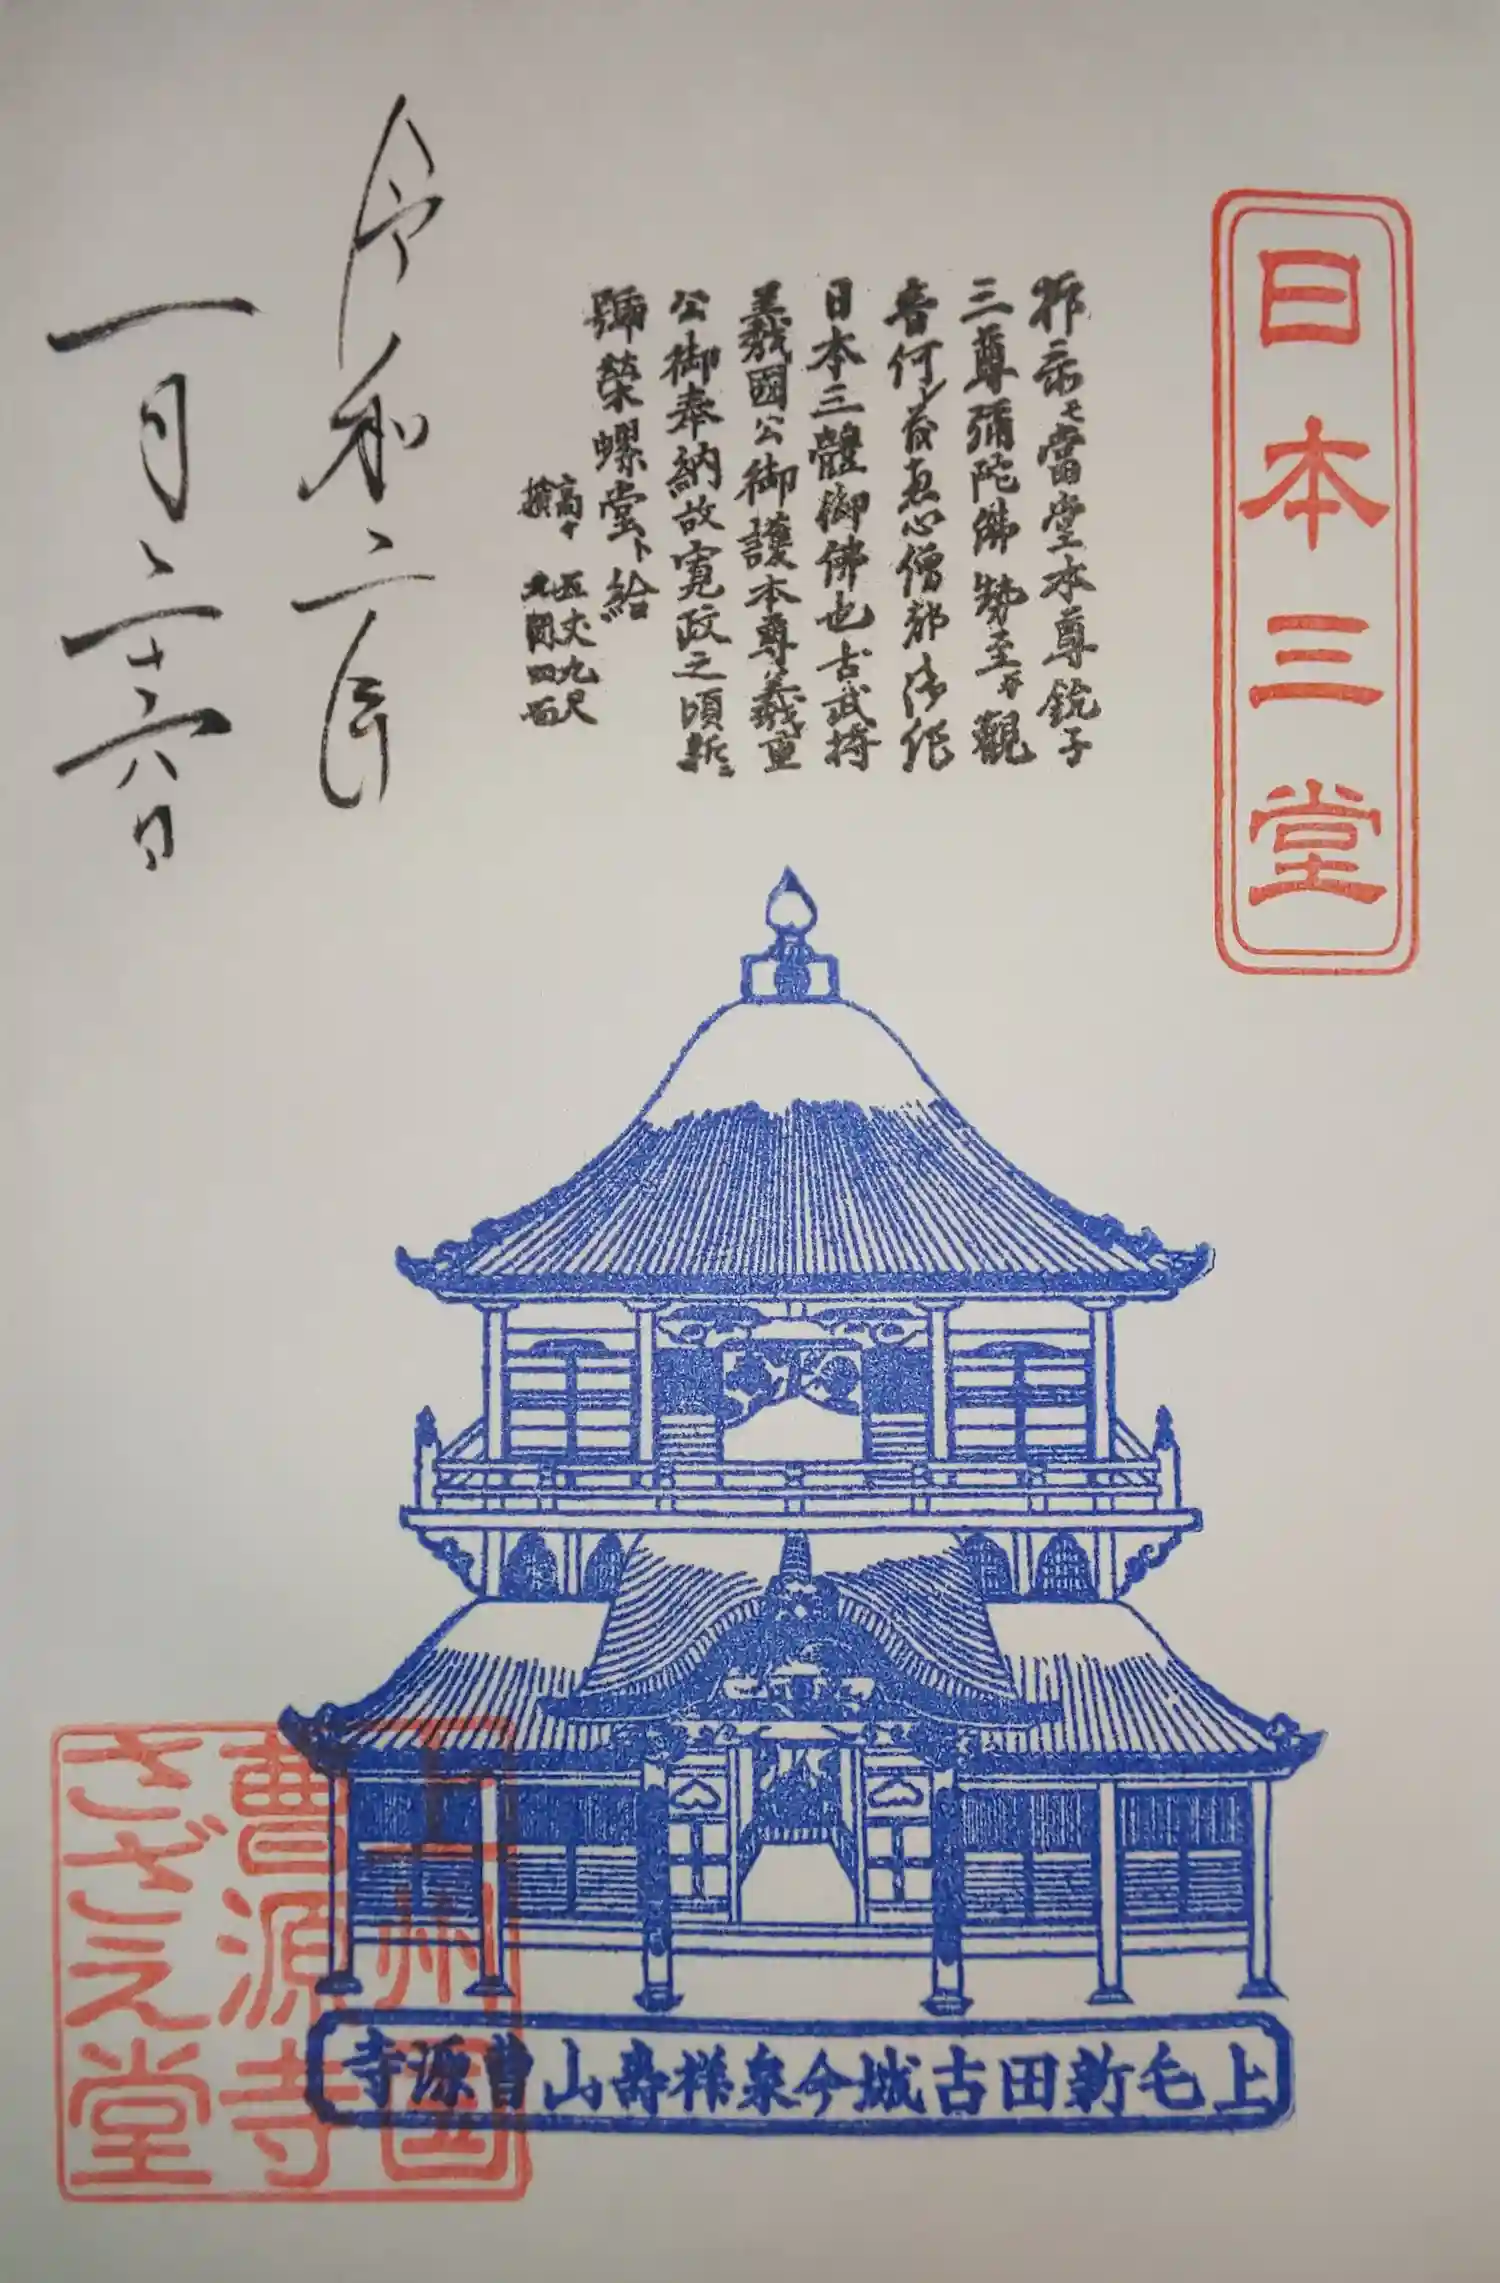 日本三堂
當堂本尊鋭子
三尊彌陀佛勢至觀
音何恵心僧都御作
日本三體御佛也古武将
義國公御護本尊義重
公御奉納故寛政之頃新
號榮螺堂ト給
高サ 五丈九尺
横 九間四面
令和二年
一月二十六日
上毛新田古城今泉祥壽山曹源寺
上州国
曹源寺
さざえ堂